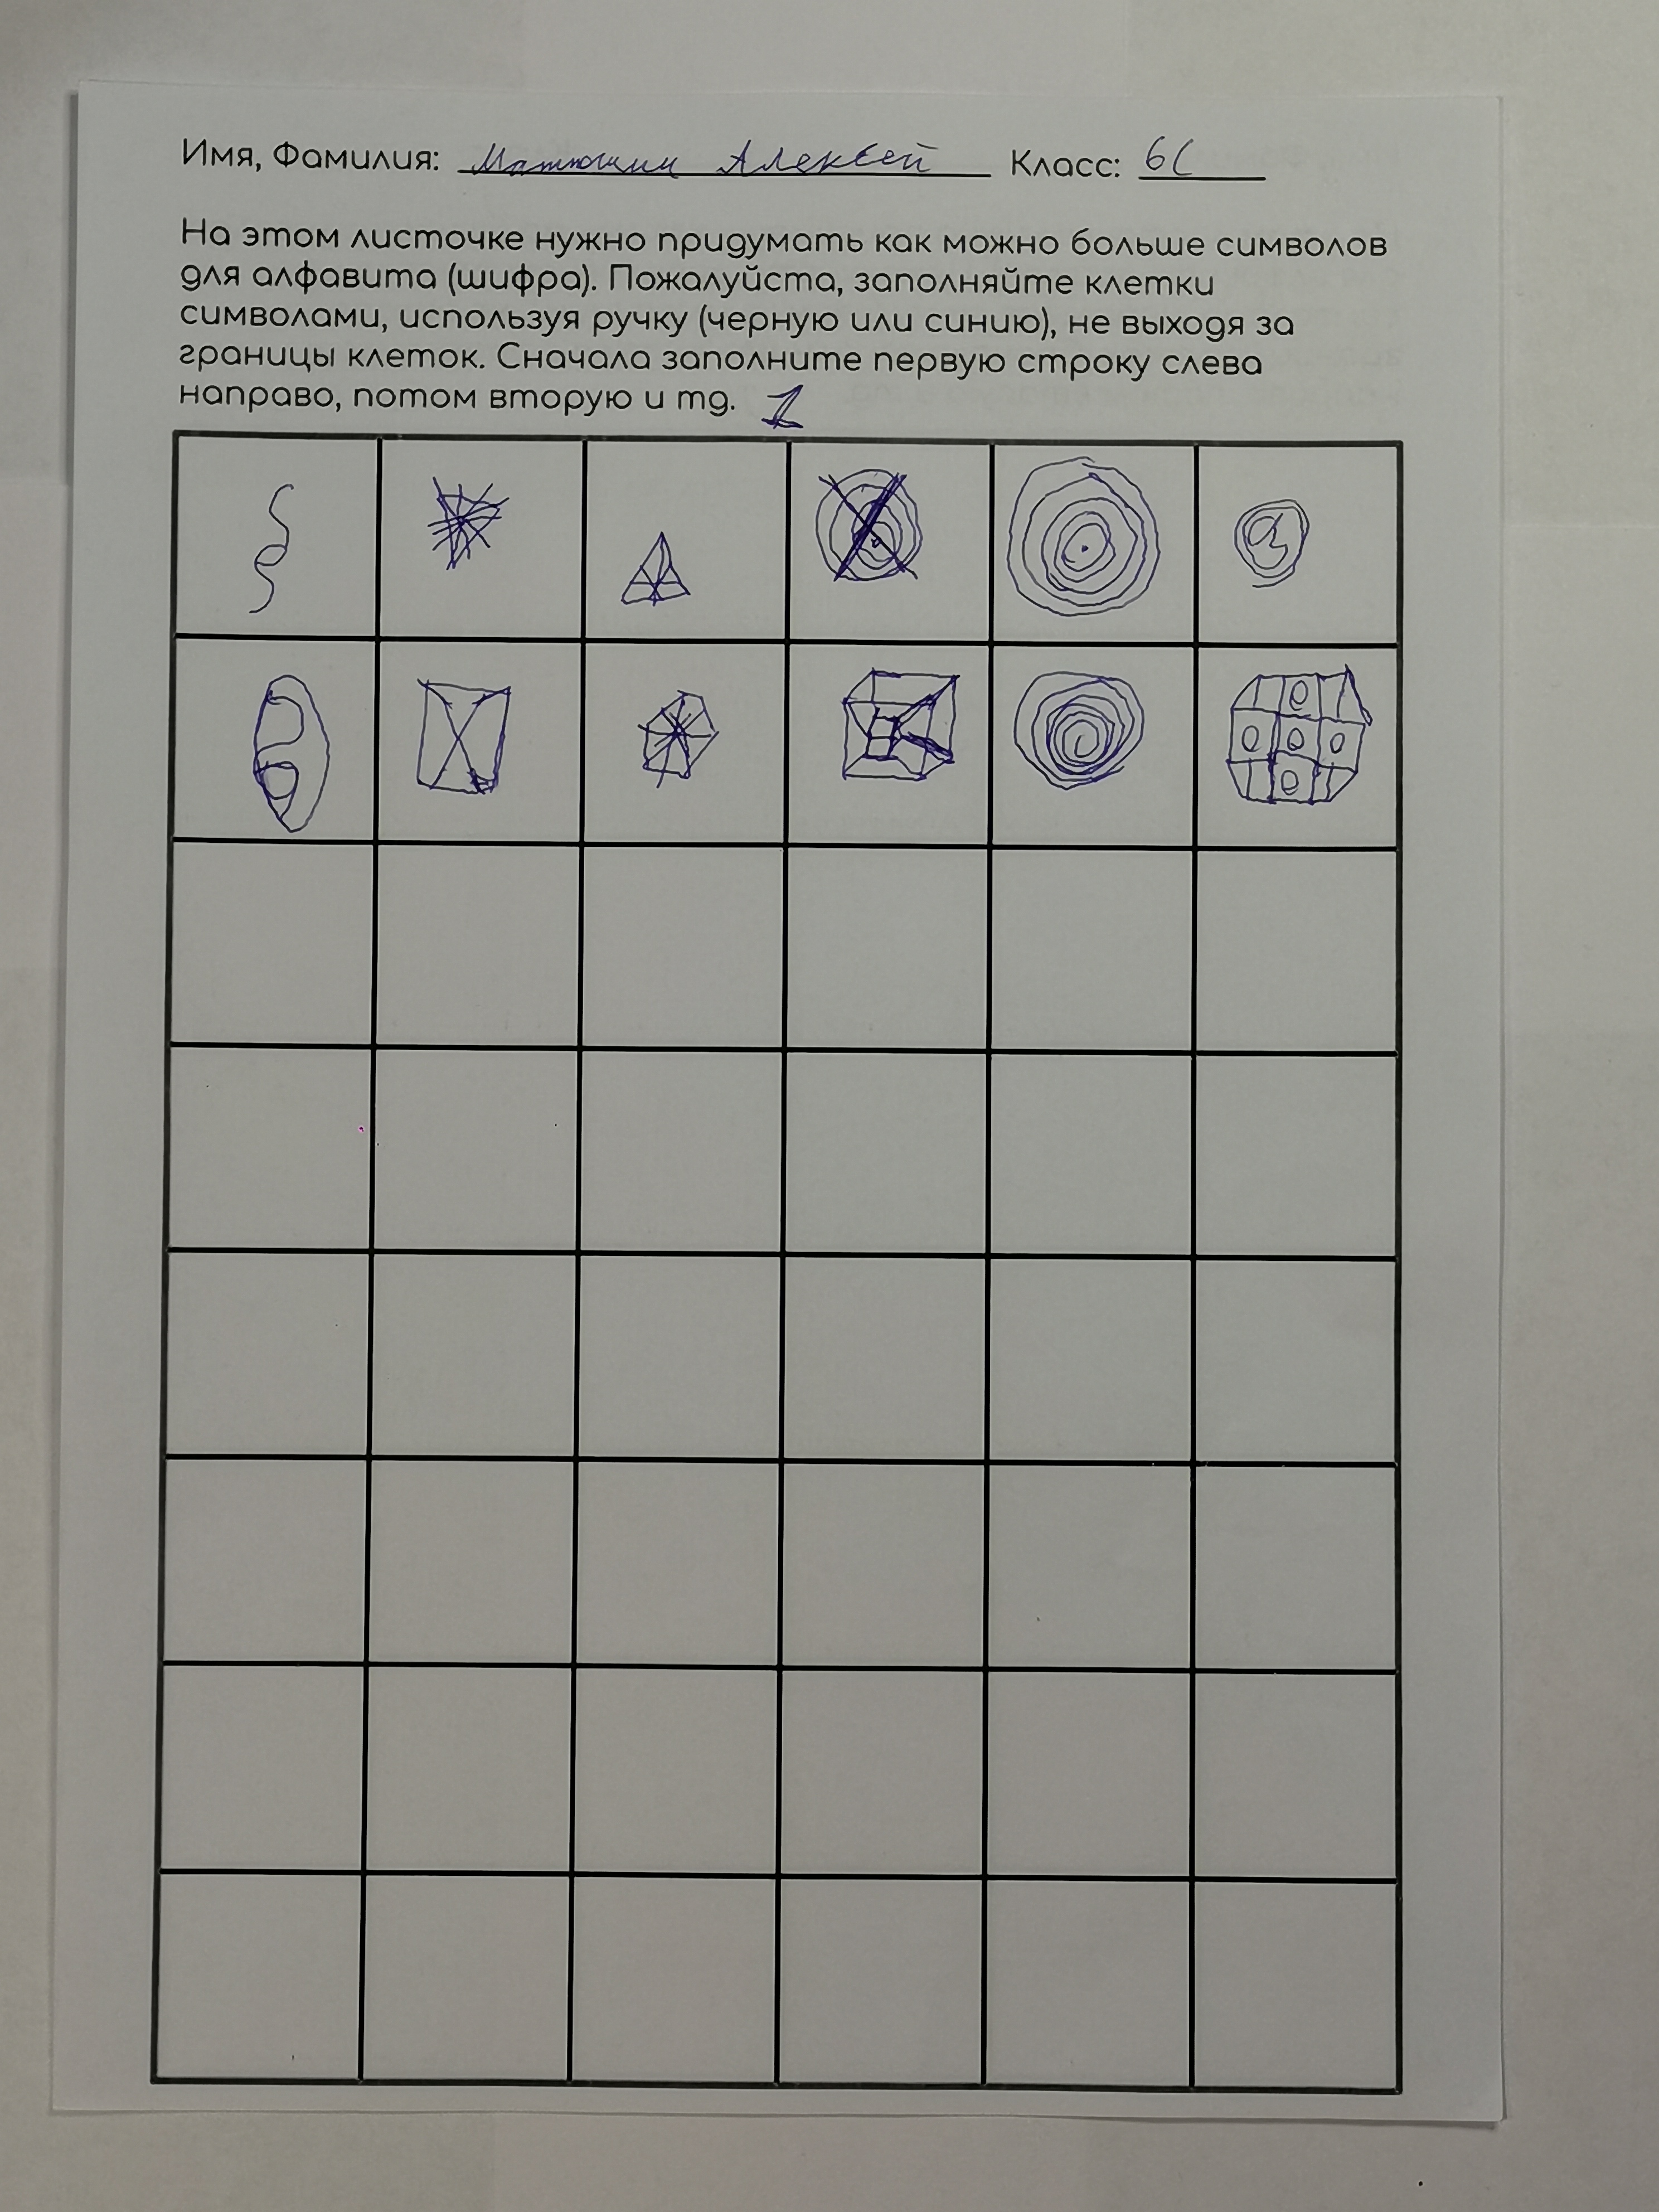 Имя, Фамилия: Матюшин Алексей Класс: 6С
На этом листочке нужно придумать как можно больше символов
для алфавита (шифра). Пожалуйста, заполняйте клетки
символами, используя ручку (черную или синию), не выходя за
границы клеток. Сначала заполните первую строку слева
направо, потом вторую и тд. 1